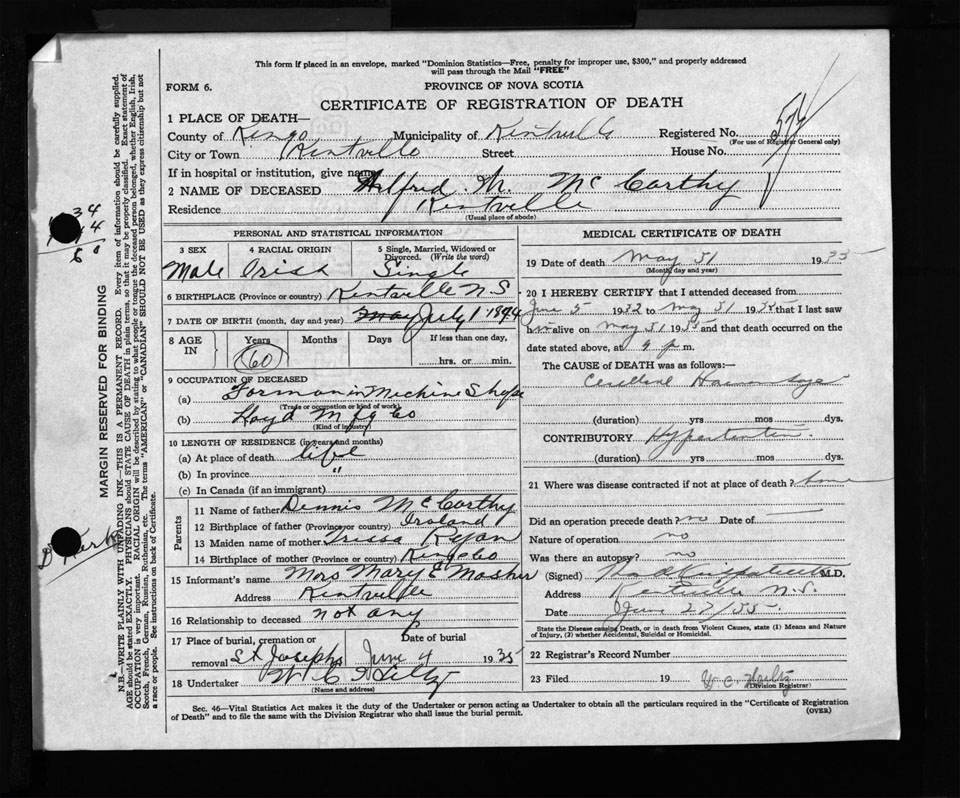 This form if placed in an envelope, marked "Dominion Statistics—Free, penalty for improper use, $300," and properly addressed
will pass through the Mail "FREE"
FORM 6.
PROVINCE OF NOVA SCOTIA
CERTIFICATE OF REGISTRATION OF DEATH
1 PLACE OF DEATH—
County of Kings Municipality of Kentville Registered No.
(For use of Registrar General only)
City or Town Kentville Street House No.
If in hospital or institution, give name
2 NAME OF DECEASED Alfred W. McCarthy
Residence Kentville
(Usual place of abode)
PERSONAL AND STATISTICAL INFORMATION
3 SEX 4 RACIAL ORIGIN 5 Single, Married, Widowed or Divorced. (Write the word)
Male Irish Single
6 BIRTHPLACE (Province or country) Kentville N.S.
7 DATE OF BIRTH (month, day and year) May July 1 1874
8 AGE IN Years Months Days If less than one day,
60 hrs. or min.
9 OCCUPATION OF DECEASED
(a) Forman in Mechine Shope
(Trade or occupation or kind of work)
(b) Lloyd Mfg Co
(Kind of industry)
10 LENGTH OF RESIDENCE (in years and months)
(a) At place of death life
(b) In province "
(c) In Canada (if an immigrant)
Parents
11 Name of father Dennis McCarthy
12 Birthplace of father (Province or country) Ireland
13 Maiden name of mother Ryan
14 Birthplace of mother (Province or country) Kings Co
15 Informant's name Mrs Mary E Mosher
Address Kentville
16 Relationship to deceased not any
17 Place of burial, cremation or removal St Josephs Date of burial June 4 1935
18 Undertaker
(Name and address)
MEDICAL CERTIFICATE OF DEATH
19 Date of death May 31 1935
(Month, day and year)
20 I HEREBY CERTIFY that I attended deceased from
June 5 1932 to May 31 1935 that I last saw
him alive on May 31 1935 and that death occurred on
date stated above, at 9 p m.
The CAUSE OF DEATH was as follows:—
Cerebral Haemorrhage
(duration) yrs mos dys.
CONTRIBUTORY Hypertension
(duration) yrs mos dys.
21 Where was disease contracted if not at place of death? home
Did an operation precede death? no Date of
Nature of operation no
Was there an autopsy? no
(Signed) M.D.
Address Kentville N.S.
Date June 27/35
State the Disease causing Death, or in death from Violent Causes, state (1) Means and Nature of Injury, (2) whether Accidental, Suicidal or Homicidal.
22 Registrar's Record Number
23 Filed 19
(Division Registrar)
Sec. 46—Vital Statistics Act makes it the duty of the Undertaker or person acting as Undertaker to obtain all the particulars required in the "Certificate of Registration
of Death" and to file the same with the Division Registrar who shall issue the burial permit.
(OVER)
MARGIN RESERVED FOR BINDING
N.B.—WRITE PLAINLY WITH UNFADING INK—THIS IS A PERMANENT RECORD. Every item of information should be carefully supplied.
AGE should be stated EXACTLY. PHYSICIANS should STATE CAUSE OF DEATH in plain terms, so that it may be properly classified. Exact statement of
OCCUPATION is very important. RACIAL ORIGIN will be described by stating to what people or tongue the deceased person belonged, whether English, Irish,
Scotch, French, German, Russian, Ruthenian, etc. The terms "AMERICAN" or "CANADIAN" SHOULD NOT BE USED as they express citizenship but not
a race or people. See instructions on back of Certificate.